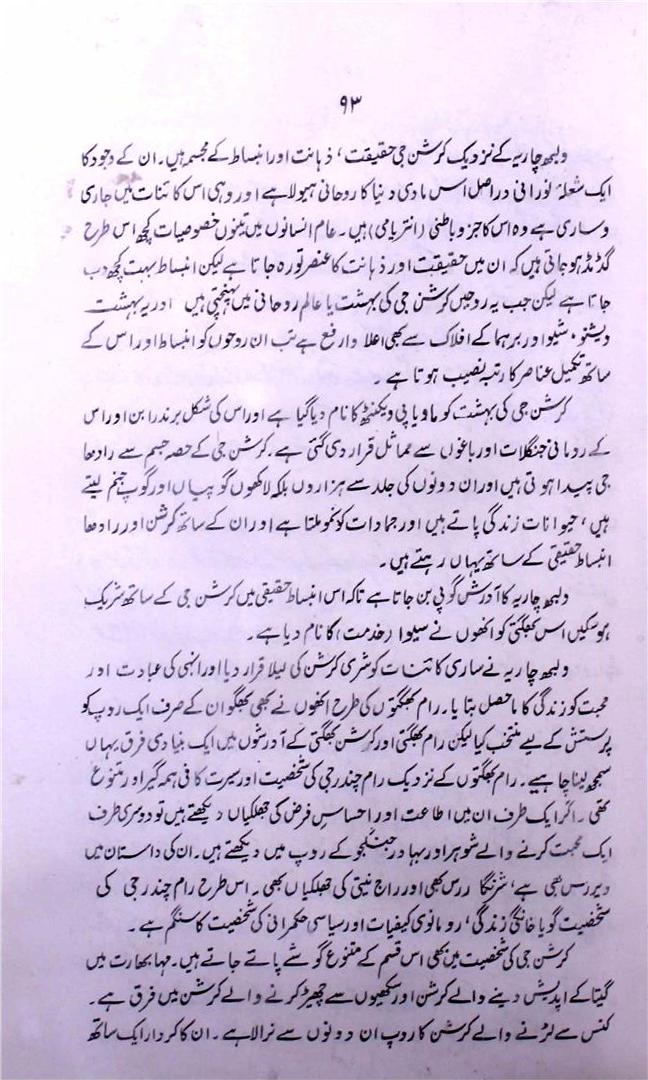 ۹۳
ولبھ چاریہ کے نزدیک کرشن جی حقیقت، ذہانت اور انبساط کے مجسم ہیں۔ ان کے وجود کا
ایک شعلۂ نورانی دراصل اس مادی دنیا کا روحانی ہیولا ہے اور وہی اس کائنات میں جاری
و ساری ہے وہ اس کا جزو باطنی (انتریامی) ہیں۔ عام انسانوں میں تینوں خصوصیات کچھ اس طرح
گڈمڈ ہو جاتی ہیں کہ ان میں حقیقت اور ذہانت کا عنصر تو رہ جاتا ہے لیکن انبساط بہت کچھ دب
جاتا ہے لیکن جب یہ روحیں کرشن جی کی بہشت یا عالم روحانی میں پہنچتی ہیں اور یہ بہشت
ویشنو، شیو اور برہما کے افلاک سے بھی اعلا و ارفع ہے تب ان روحوں کو انبساط اور اس کے
ساتھ تکمیل عناصر کا رتبہ نصیب ہوتا ہے۔
کرشن جی کی بہشت کو ماویا پی ویکنٹھ کا نام دیا گیا ہے اور اس کی شکل برندرابن اور اس
کے رومانی جنگلات اور باغوں سے مماثل قرار دی گئی ہے۔ کرشن جی کے حصہ جسم سے رادھا
جی پیدا ہوتی ہیں اور ان دونوں کی جلد سے ہزاروں بلکہ لاکھوں گوپیاں اور گوپ جنم لیتے
ہیں، حیوانات زندگی پاتے ہیں اور جمادات کو نمو ملتا ہے اور ان کے ساتھ کرشن اور رادھا
انبساط حقیقی کے ساتھ یہاں رہتے ہیں۔
ولبھ چاریہ کا آدرش گوپی بن جاتا ہے تاکہ اس انبساط حقیقی میں کرشن جی کے ساتھ شریک
ہو سکیں اس بھگتی کو انھوں نے سیوا (خدمت) کا نام دیا ہے۔
ولبھ چاریہ نے ساری کائنات کو شری کرشن کی لیلا قرار دیا اور انہی کی عبادت اور
محبت کو زندگی کا ماحصل بتایا۔ رام بھگتوں کی طرح انھوں نے بھی بھگوان کے صرف ایک روپ کو
پرستش کے لیے منتخب کیا لیکن رام بھگتی اور کرشن بھگتی کے آدرشوں میں ایک بنیادی فرق یہاں
سمجھ لینا چاہیے۔ رام بھگتوں کے نزدیک رام چندرجی کی شخصیت اور سیرت کافی ہمہ گیر اور متنوع
تھی۔ اگر ایک طرف ان میں اطاعت اور احساسِ فرض کی جھلکیاں دیکھتے ہیں تو دوسری طرف
ایک محبت کرنے والے شوہر اور بہادر جنگجو کے روپ میں دیکھتے ہیں۔ ان کی داستان میں
ویر رس بھی ہے، شرنگا ررس بھی اور راج نیتی کی جھلکیاں بھی۔ اس طرح رام چندر جی کی
شخصیت گویا خانگی زندگی، رومانوی کیفیات اور سیاسی حکمرانی کی شخصیت کا سنگم ہے۔
کرشن جی کی شخصیت میں بھی اس قسم کے متنوع گوشے پائے جاتے ہیں۔ مہا بھارت میں
گیتا کے اپدیش دینے والے کرشن اور سکھیوں سے چھیڑ کرنے والے کرشن میں فرق ہے۔
کنس سے لڑنے والے کرشن کا روپ ان دونوں سے نرالا ہے۔ ان کا کردار ایک ساتھ